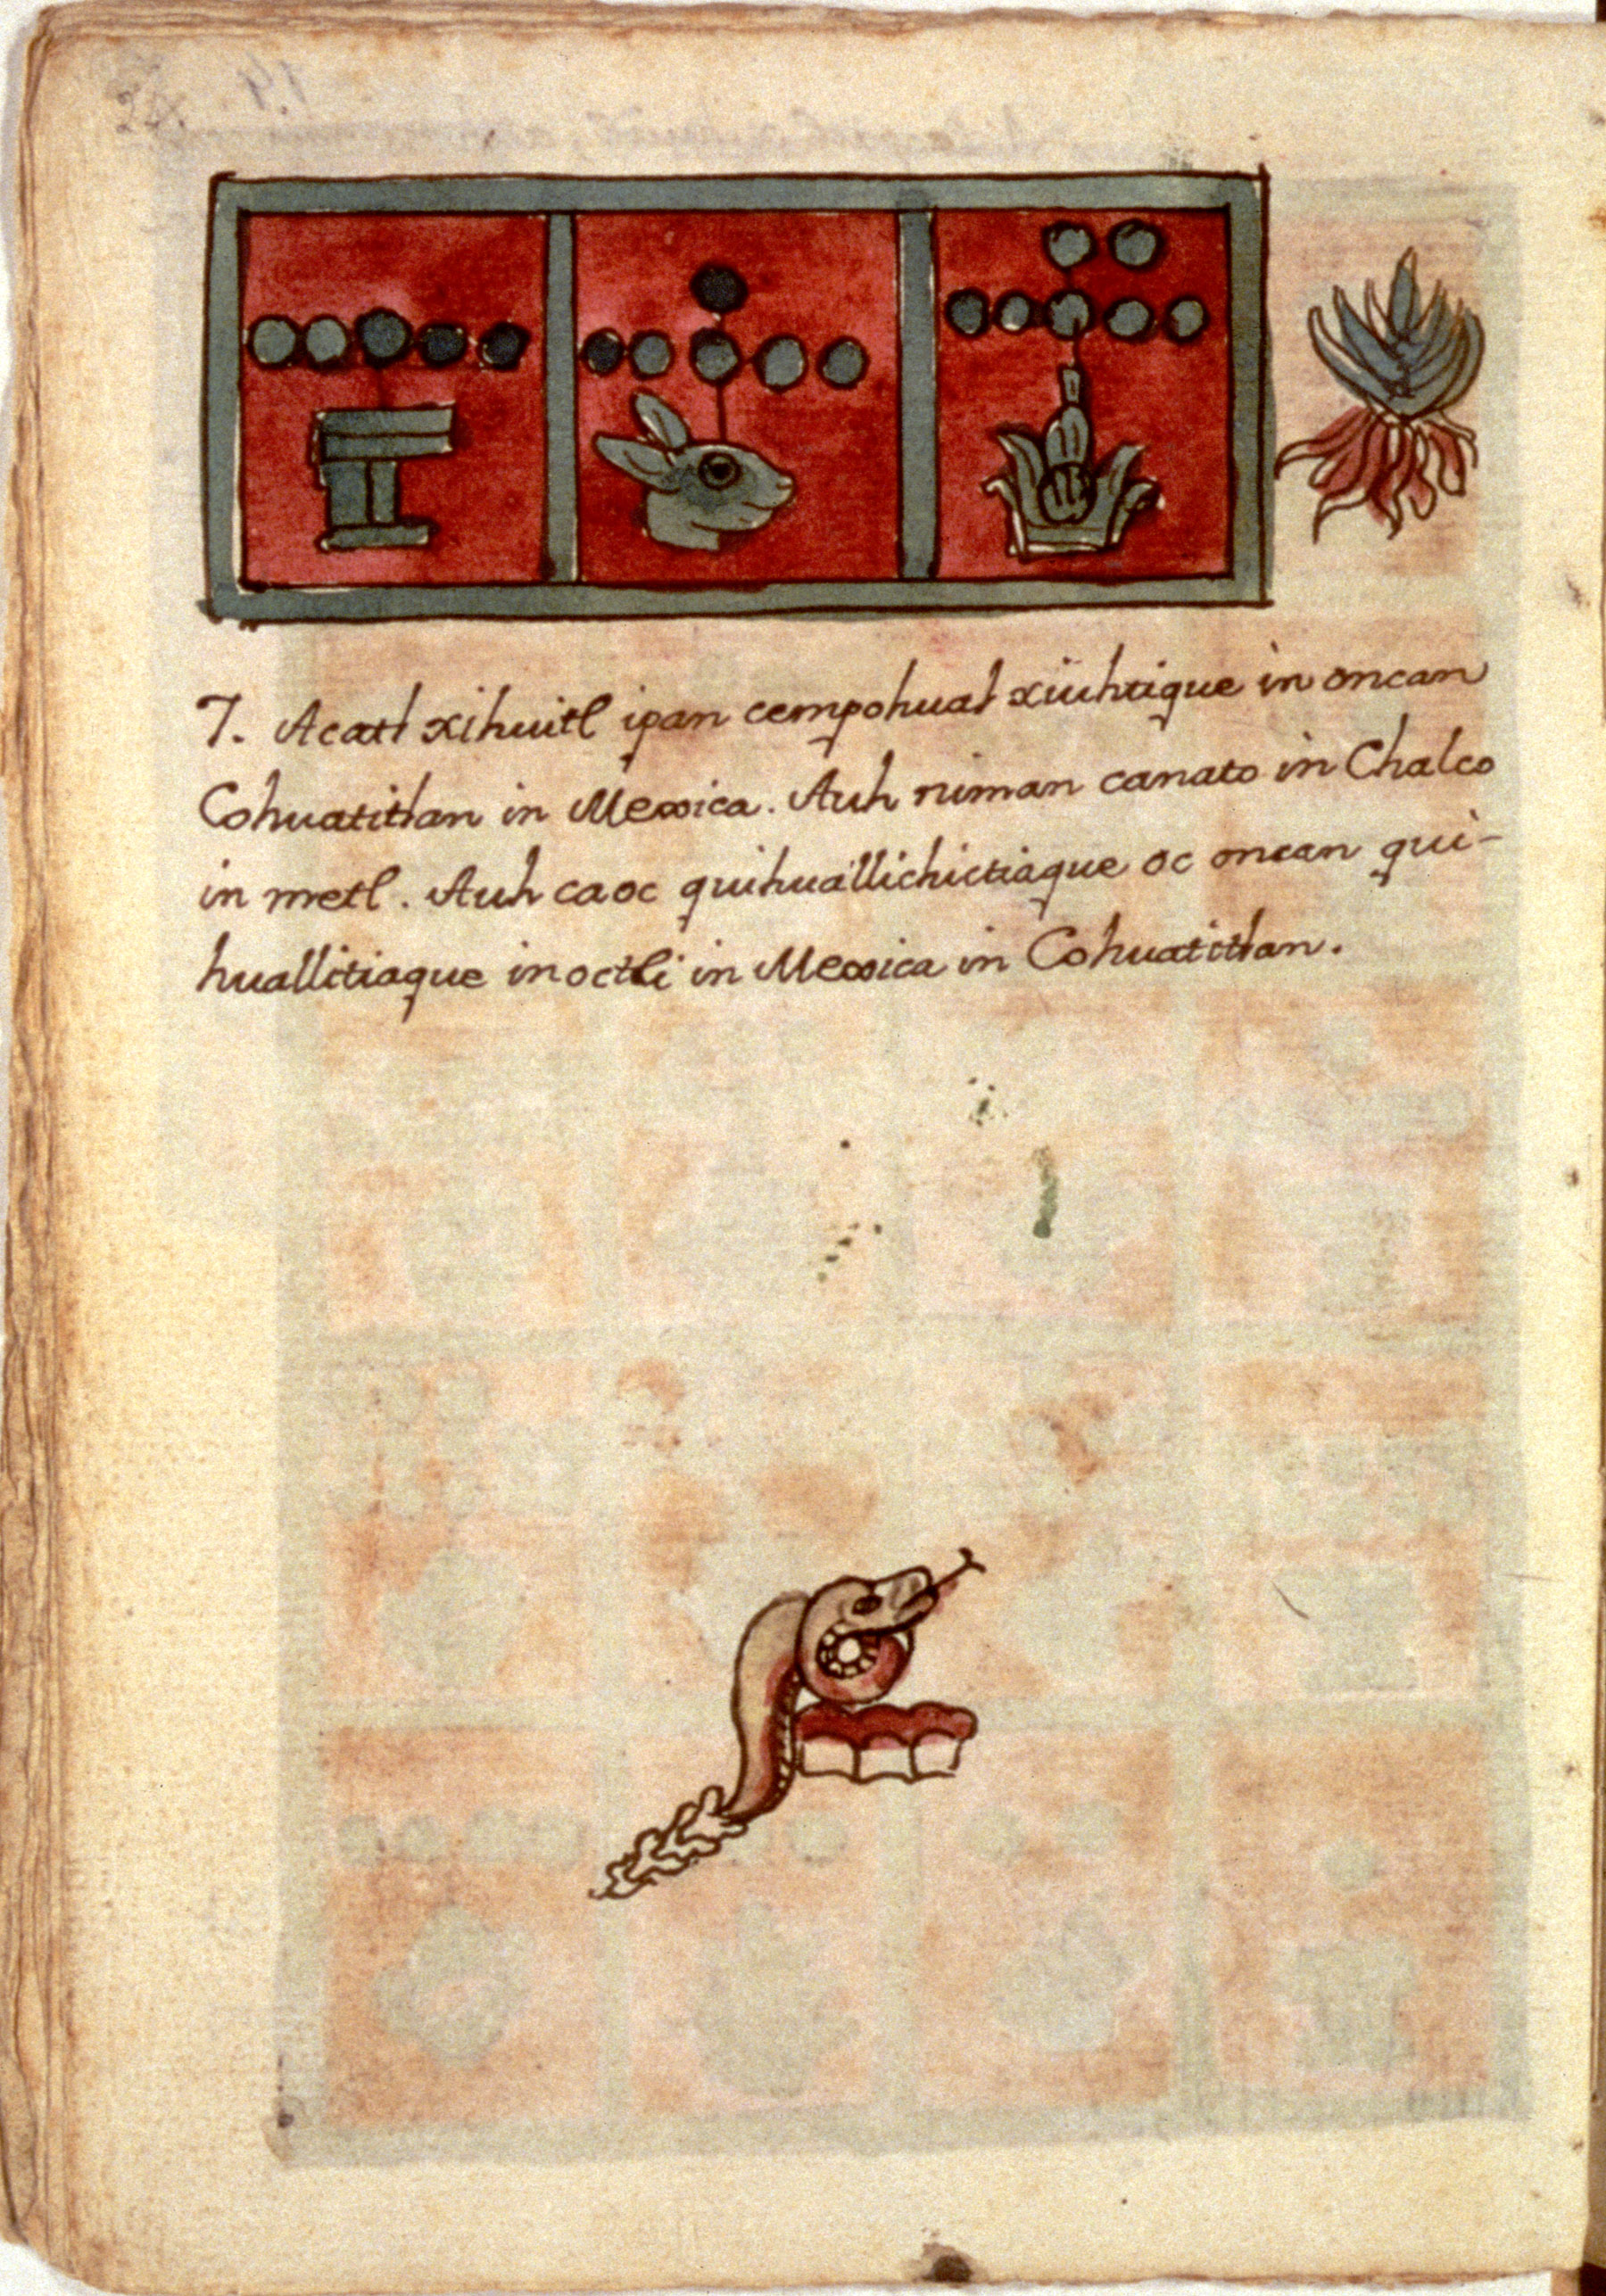 7. Acatl xihuitl ipan cempohual xiuhtique in oncan
Cohuatitlan in Mexica. Auh niman canato in Chalco
in metl. Auh caoc quihuallichictiaque oc oncan qui-
huallitiaque in octli in Mexica in Cohuatitlan.